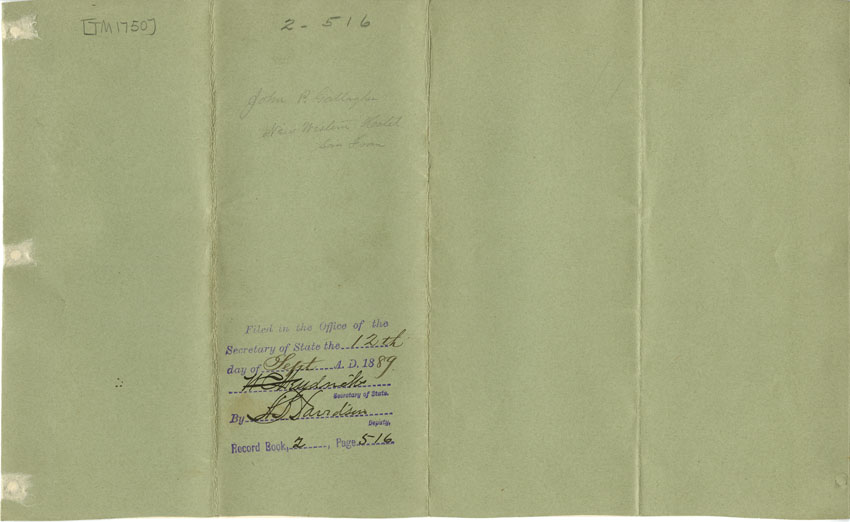 [TM1750]
2 - 516
John P. Gallagher
New Western Hotel
San Fran
Filed in the Office of the
Secretary of State the 12th
day of Sept A. D. 1889
Secretary of State.
By Davidson
Deputy.
Record Book, 2, Page 516